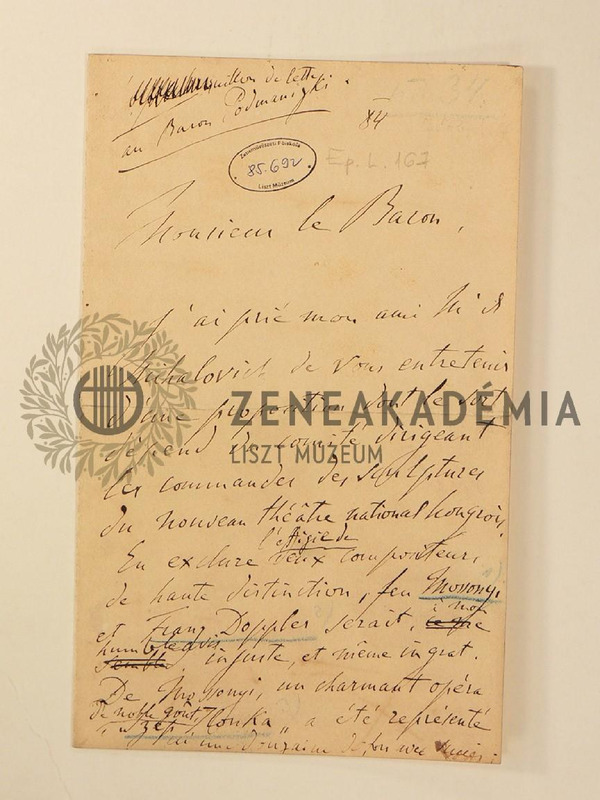 brouillon de lettre
au Baron Podmaniczki
84
Zeneművészeti Főiskola
85.692
Liszt Múzeum
Ep. L. 167
Monsieur le Baron,
J'ai prié mon ami Mr de
Mihalovich de vous entretenir
d'une proposition dont le sort
dépend du comité dirigeant
les commandes des sculptures
du nouveau théâtre national hongrois.
l'effigie de
En exclure deux compositeurs,
de haute distinction, feu Mosonyi
et Franz Doppler serait, à mon
humble avis injuste, et même ingrat.
De Mosonyi, un charmant opéra
de noble goût
"Szép Ilonka" a été représenté
d'une douzaine de fois avec succès
ZENEAKADÉMIA
LISZT MÚZEUM